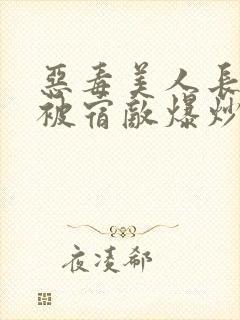 惡毒美人長
被宿敵爆炒
夜凌郗